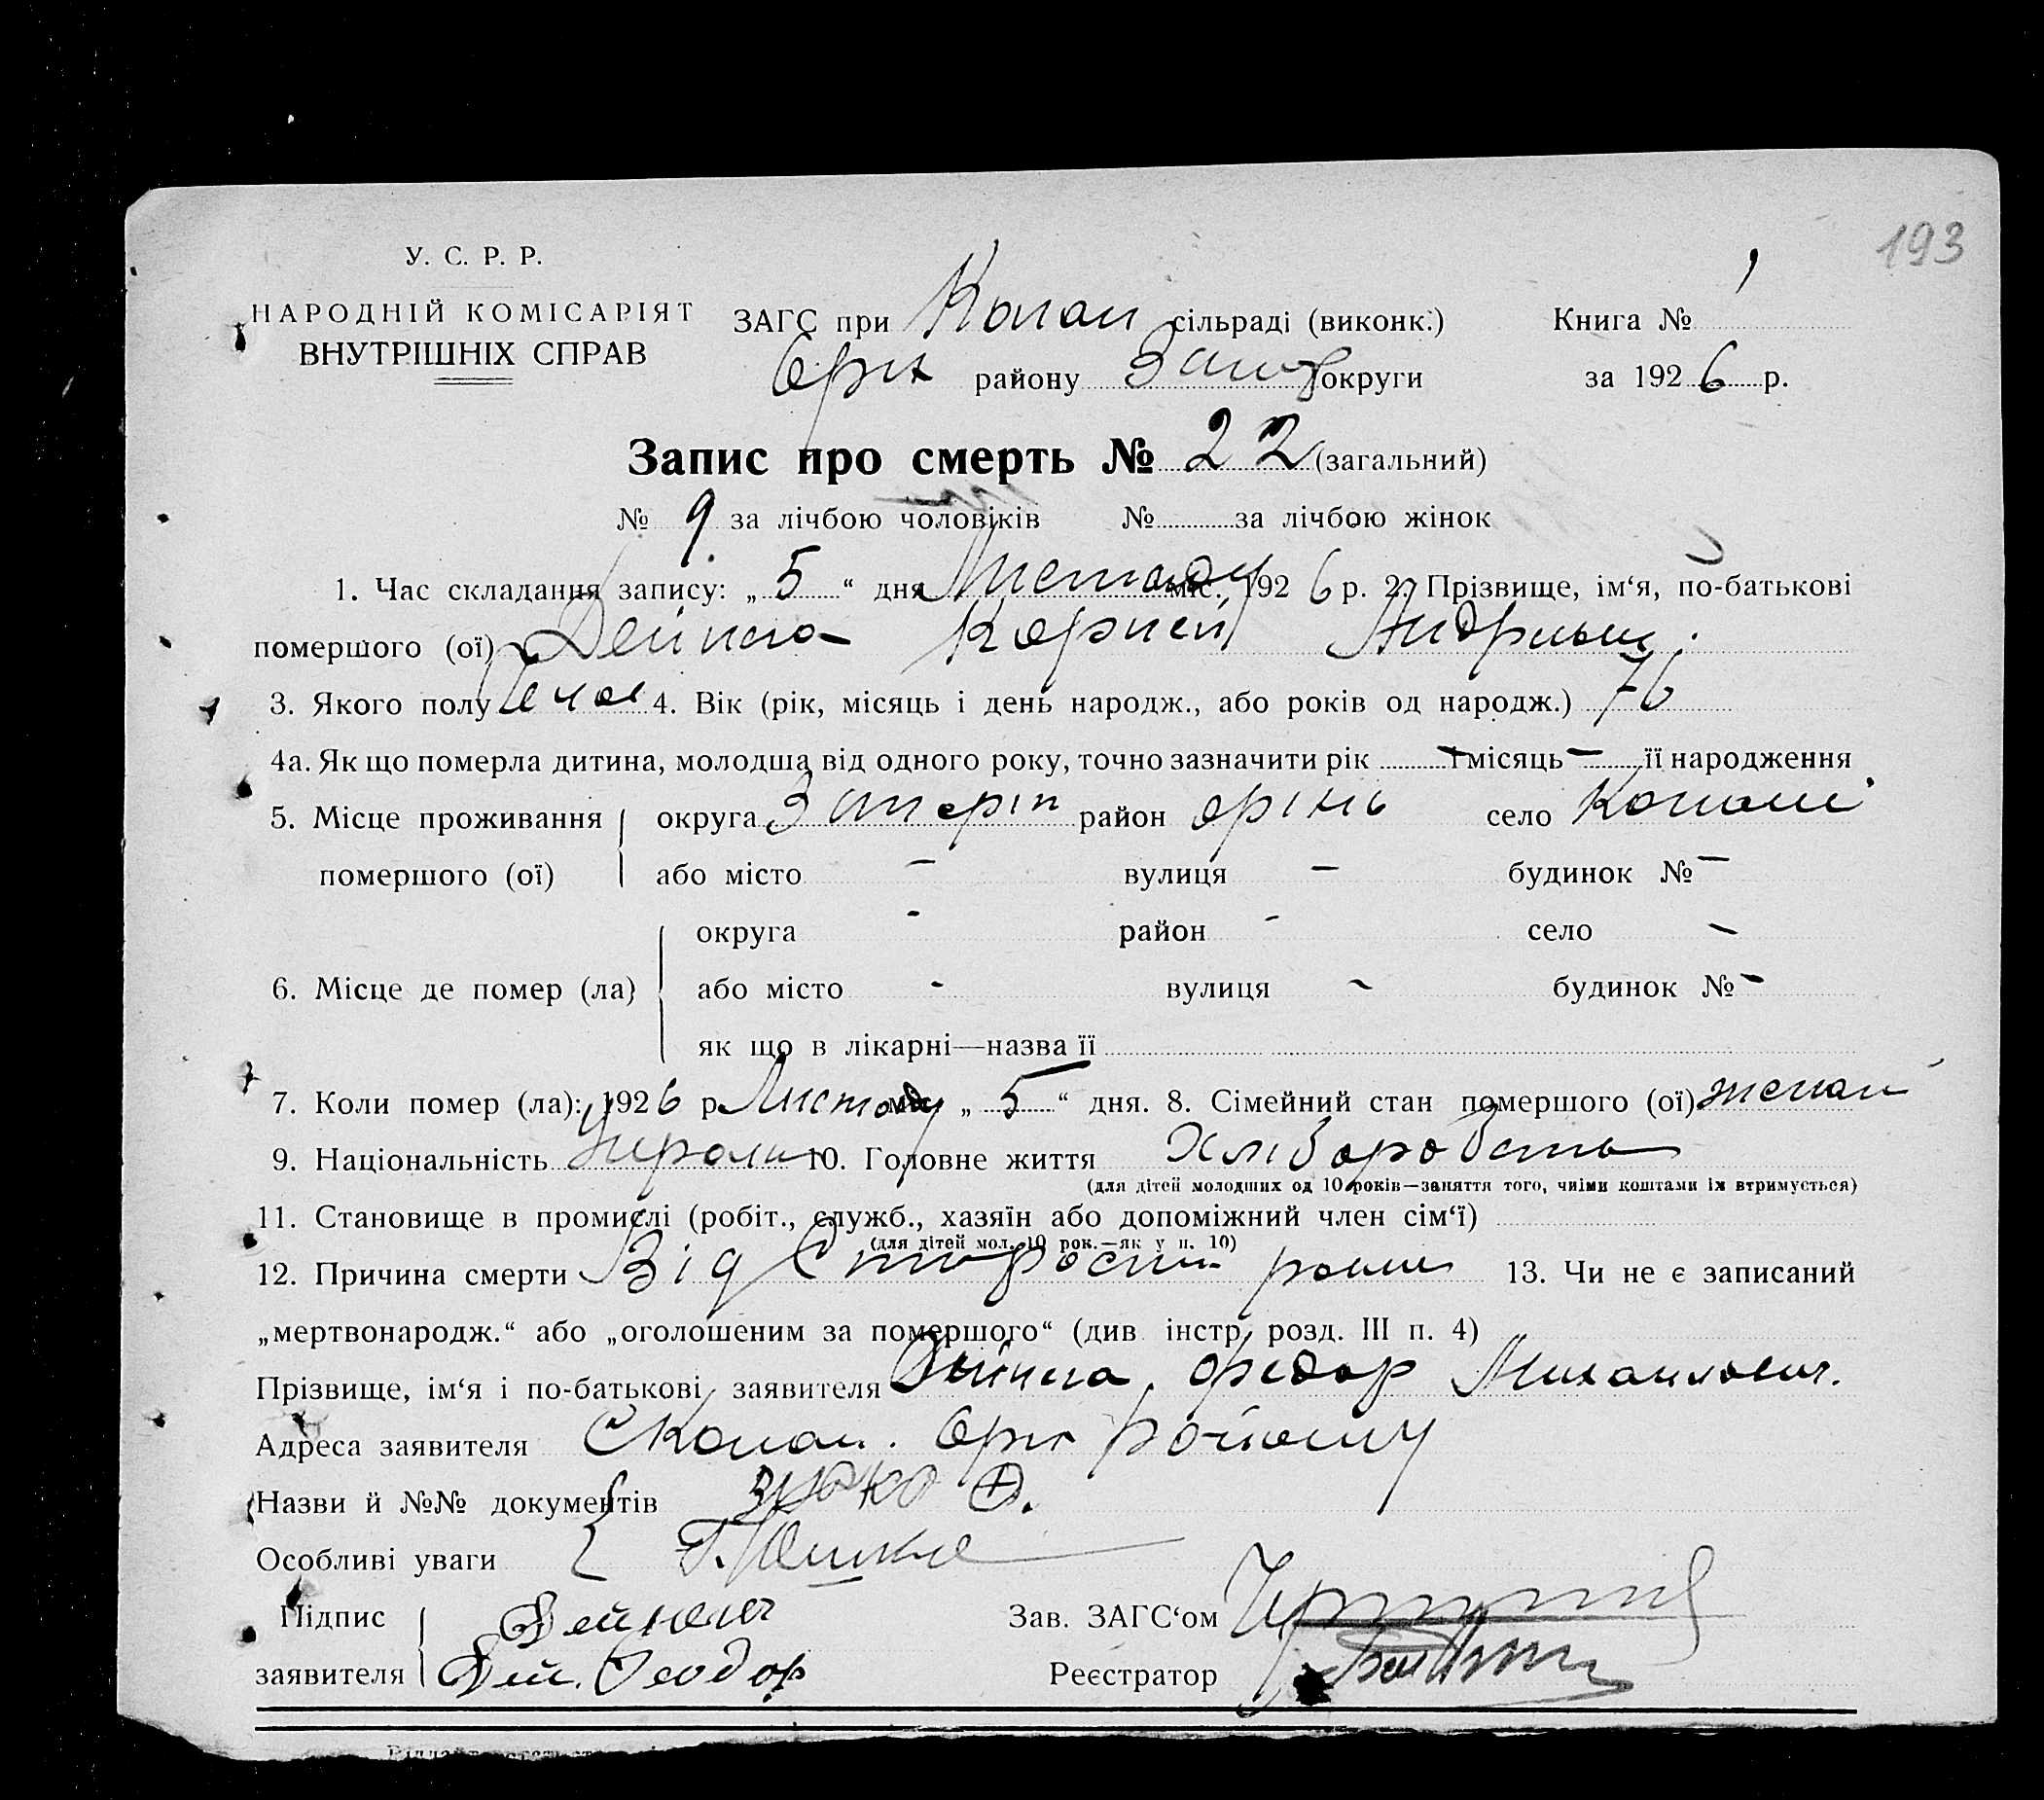 193
У. С. Р. Р.
НАРОДНІЙ КОМІСАРІЯТ
ВНУТРІШНІХ СПРАВ
ЗАГС при Копан сільраді (виконк.) Книга № 1
Оріх району Запор округи за 1926 р.
Запис про смерть № 22 (загальний)
№ 9 за лічбою чоловіків № за лічбою жінок
1. Час складання запису: „5“ дня Листопаду міс. 1926 р. 2. Прізвище, ім‘я, по-батькові
помершого (ої) Дейнега Корней Андрыев.
3. Якого полу чол 4. Вік (рік, місяць і день народж., або років од народж.) 76
4а. Як що померла дитина, молодша від одного року, точно зазначити рік — місяць — її народження
5. Місце проживання округа район село Копани
помершого (ої) або місто — вулиця — будинок № —
округа - район - село -
6. Місце де помер (ла) або місто - вулиця - будинок № -
як що в лікарні—назва її
7. Коли помер (ла): 1926 р. Листопаду міс. „5“ дня. 8. Сімейний стан помершого (ої) женат
9. Національність 10. Головне життя Хліборобств
(для дітей молодших од 10 років—заняття того, чиїми коштами їх втримується)
11. Становище в промислі (робіт., служб., хазяїн або допоміжний член сім‘ї)
(для дітей мол. 10 рок.—як у п. 10)
12. Причина смерти Від Старости 13. Чи не є записаний
„мертвонародж.“ або „оголошеним за помершого“ (див інстр. розд. III п. 4)
Прізвище, ім‘я і по-батькові заявителя Дейнега Федор Михайлович.
Адреса заявителя С Копан. Оріх Района
Назви й №№ документів
Особливі уваги
Підпис Зав. ЗАГС‘ом
заявителя Дей. Феодор Реєстратор